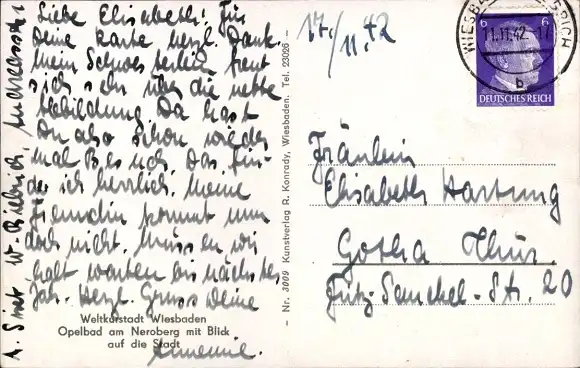 Liebe Elisabeth! Für
Deine Karte herzl. Dank.
Mein Schwesterlein freut
sich sehr über die nette
Abbildung. Da hast
Du also schon wieder
mal Besuch. Das fin-
de ich herrlich. Meine
Freundin kommt nun
doch nicht. Müssen wir
halt warten bis nächstes
Jahr. Herzl. Gruss Deine
Annemie.
Weltkurstadt Wiesbaden
Opelbad am Neroberg mit Blick
auf die Stadt
W. Biebrich
Nr. 3009 Kunstverlag R. Konrady, Wiesbaden. Tel. 23026
17./11.42
WIESBADEN-BIEBRICH
11.11.42.-17
b
6 6
DEUTSCHES REICH
Fräulein
Elisabeth Hartung
Gotha Thür.
Fritz-Sauckel-Str. 20